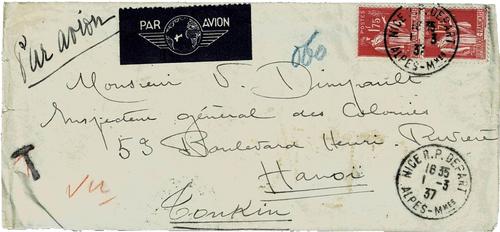 Par avion
PAR AVION
POSTES
1F75
NICE R.P. DEPART
18 35
1-3
37
ALPES-Mmes
Monsieur
Inspecteur général des Colonies
59 Boulevard Henri Rivière
Hanoi
Tonkin
T
NICE R.P. DEPART
18 35
1-3
37
ALPES-Mmes